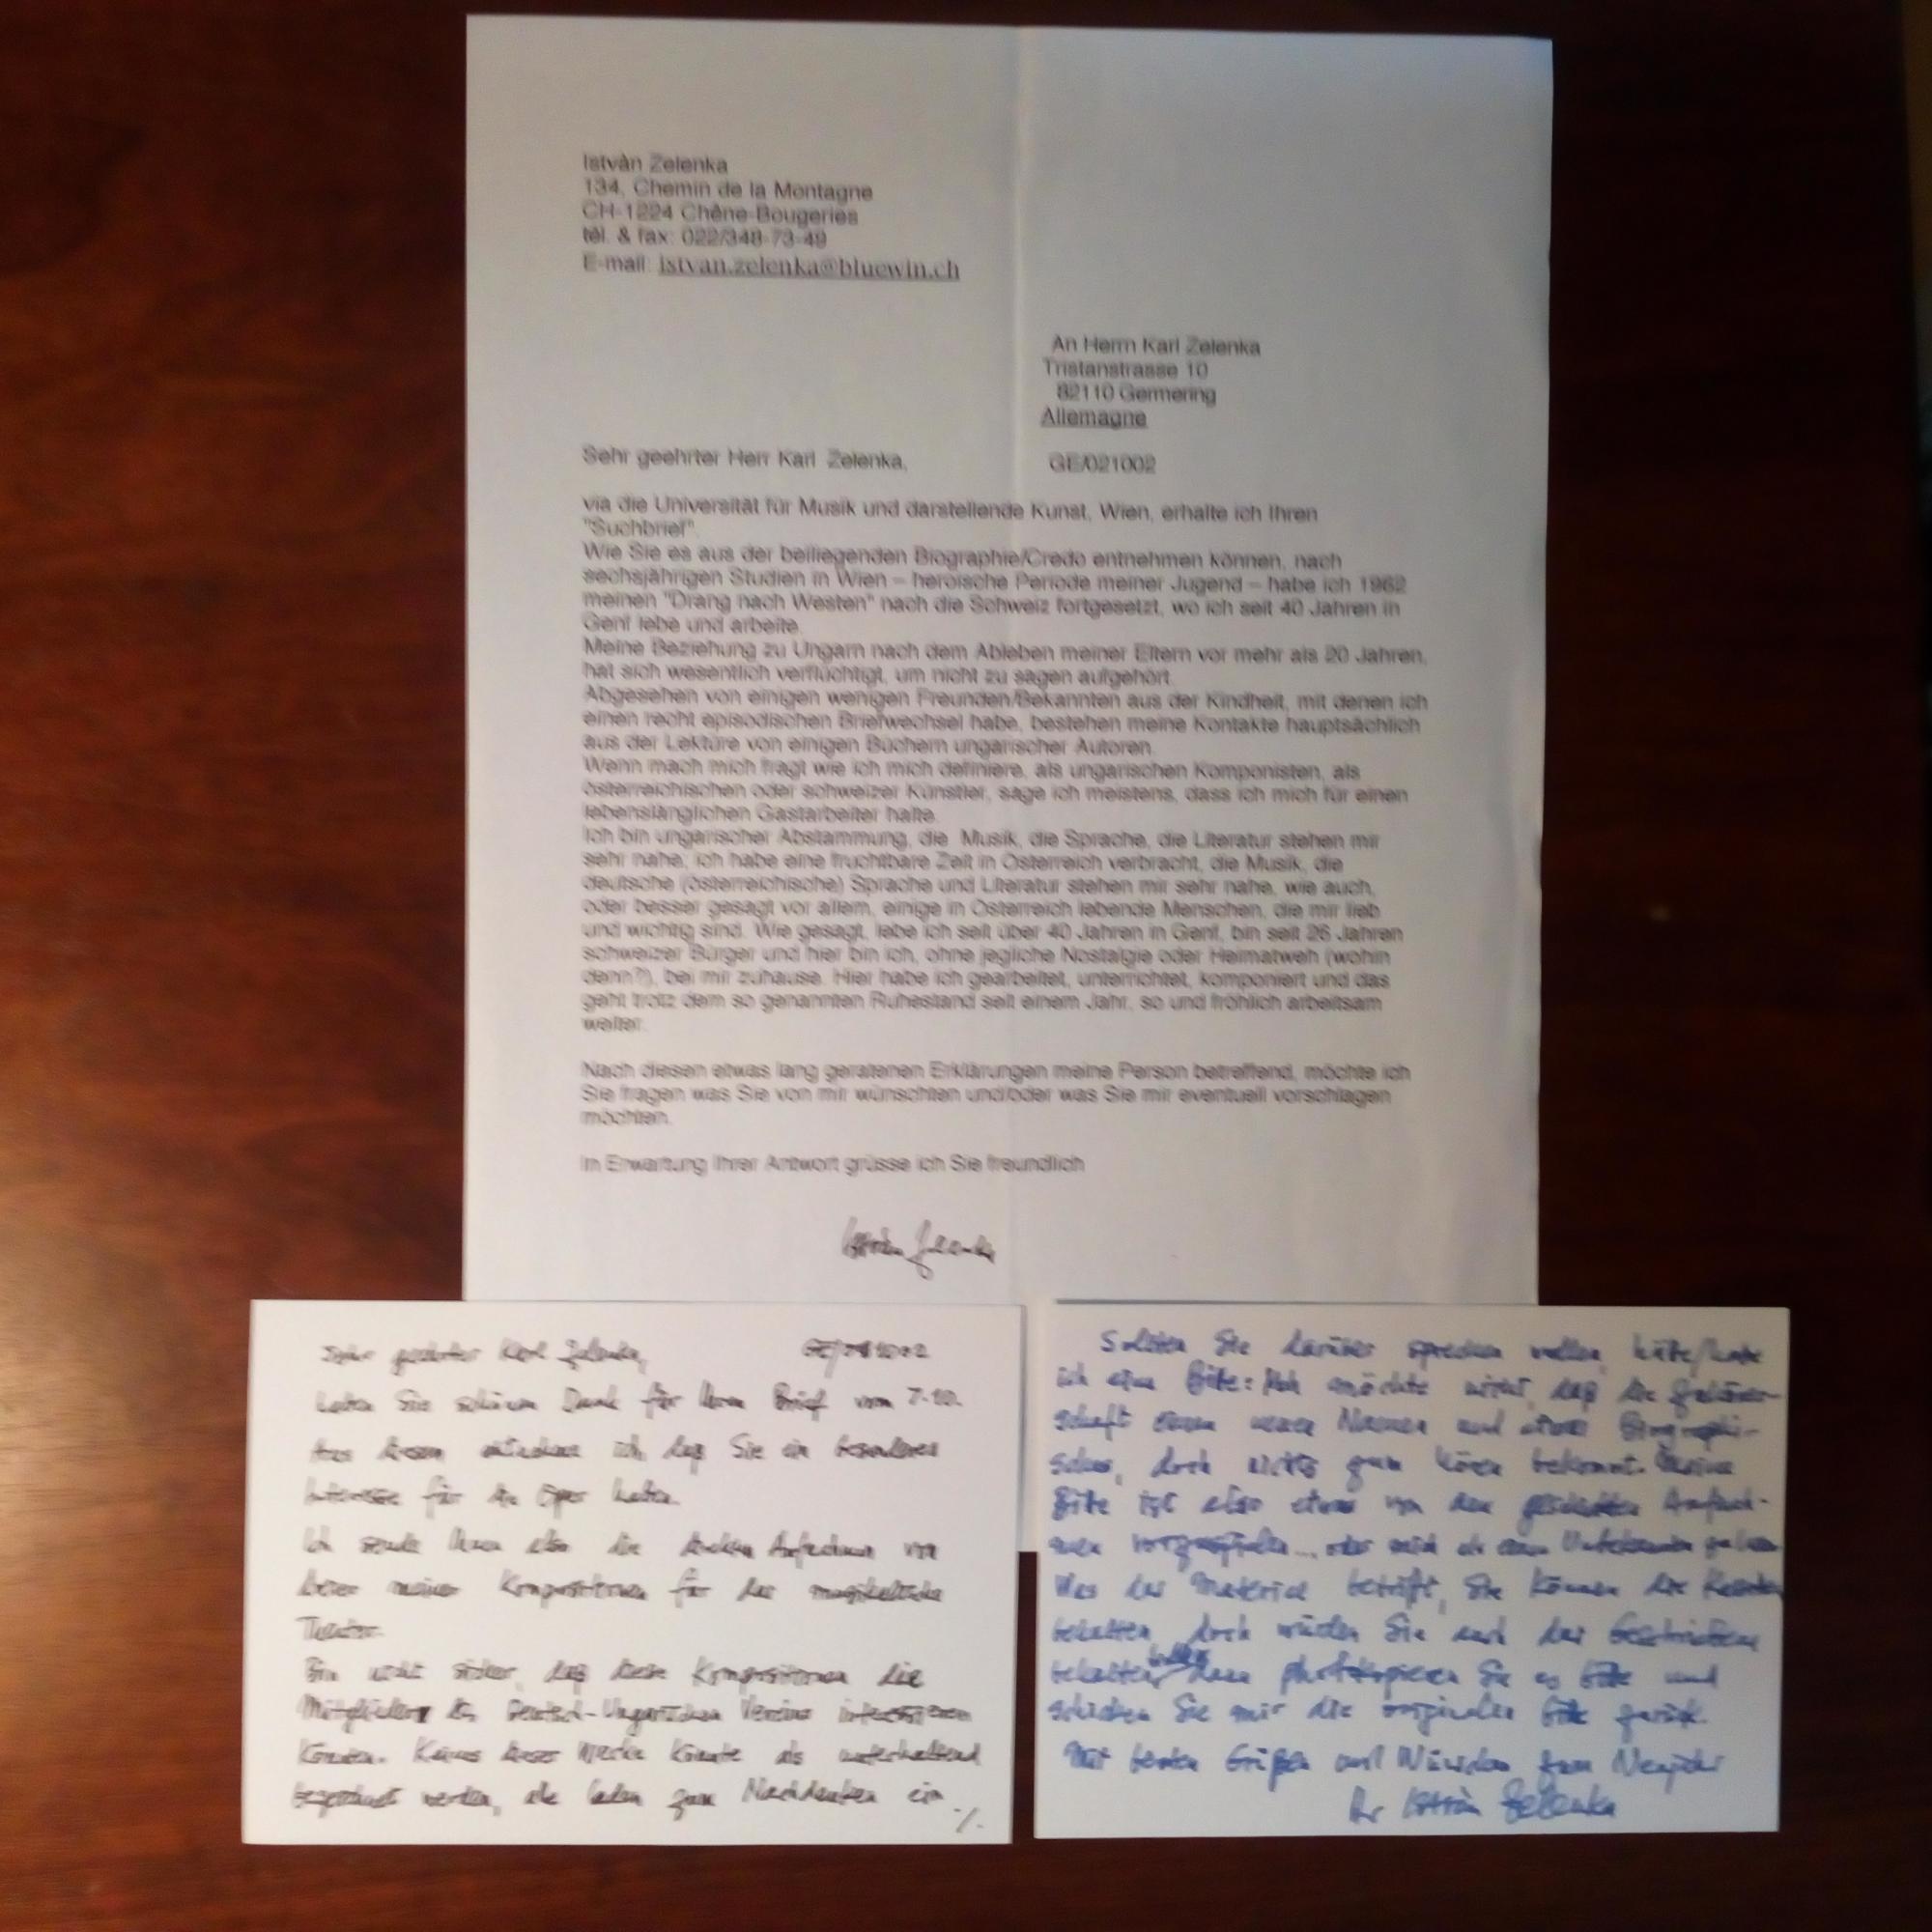 Istvàn Zelenka
134, Chemin de la Montagne
CH-1224 Chêne-Bougeries
tél. & fax: 022/348-73-49
E-mail: istvan.zelenka@bluewin.ch
An Herrn Karl Zelenka
Tristanstrasse 10
82110 Germering
Allemagne
Sehr geehrter Herr Karl Zelenka,
GE/021002
via die Universität für Musik und darstellende Kunst, Wien, erhalte ich Ihren
"Suchbrief".
Wie Sie es aus der beiliegenden Biographie/Credo entnehmen können, nach
sechsjährigen Studien in Wien – heroische Periode meiner Jugend – habe ich 1962
meinen "Drang nach Westen" nach die Schweiz fortgesetzt, wo ich seit 40 Jahren in
Genf lebe und arbeite.
Meine Beziehung zu Ungarn nach dem Ableben meiner Eltern vor mehr als 20 Jahren,
hat sich wesentlich verflüchtigt, um nicht zu sagen aufgehört.
Abgesehen von einigen wenigen Freunden/Bekannten aus der Kindheit, mit denen ich
einen recht episodischen Briefwechsel habe, bestehen meine Kontakte hauptsächlich
aus der Lektüre von einigen Büchern ungarischer Autoren.
Wenn mach mich fragt wie ich mich definiere, als ungarischen Komponisten, als
österreichischen oder schweizer Künstler, sage ich meistens, dass ich mich für einen
lebenslänglichen Gastarbeiter halte.
Ich bin ungarischer Abstammung, die Musik, die Sprache, die Literatur stehen mir
sehr nahe; ich habe eine fruchtbare Zeit in Österreich verbracht, die Musik, die
deutsche (österreichische) Sprache und Literatur stehen mir sehr nahe, wie auch,
oder besser gesagt vor allem, einige in Österreich lebende Menschen, die mir lieb
und wichtig sind. Wie gesagt, lebe ich seit über 40 Jahren in Genf, bin seit 26 Jahren
schweizer Bürger und hier bin ich, ohne jegliche Nostalgie oder Heimatweh (wohin
denn?), bei mir zuhause. Hier habe ich gearbeitet, unterrichtet, komponiert und das
geht trotz dem so genannten Ruhestand seit einem Jahr, so und fröhlich arbeitsam
weiter.
Nach diesen etwas lang geratenen Erklärungen meine Person betreffend, möchte ich
Sie fragen was Sie von mir wünschten und/oder was Sie mir eventuell vorschlagen
möchten.
In Erwartung Ihrer Antwort grüsse ich Sie freundlich
Istvàn Zelenka
Sehr geehrter Karl Zelenka,
haben Sie schönen Dank für Ihren Brief vom 7.10.
Aus diesem entnehme ich, daß Sie ein besonderes
Interesse für die Oper haben.
Ich sende Ihnen also die Aufnahmen von
dreier meiner Kompositionen für das musikalische
Theater.
Bin nicht sicher, daß diese Kompositionen die
Mitglieder des Deutsch-Ungarischen Vereins interessieren
könnten. Keines dieser Werke könnte als unterhaltend
bezeichnet werden, alle laden zum Nachdenken ein ./.
Sollten Sie darüber sprechen wollen, hätte/habe
ich eine Bitte: Ich möchte nicht, daß die Zuhörer-
schaft einen neuen Namen und etwas Biographi-
sches, doch nichts zum hören bekommt. Meine
Bitte ist also etwas von den geschickten Aufnah-
men vorzuspielen... oder mich als einen Unbekannten
Was das Material betrifft, Sie können die Kassetten
behalten, doch würden Sie auch das Geschriebene
behalten wollen, dann photokopieren Sie es bitte und
schicken Sie mir die originalen bitte zurück.
Mit besten Grüßen und Wünschen zum Neujahr
Ihr Istvàn Zelenka